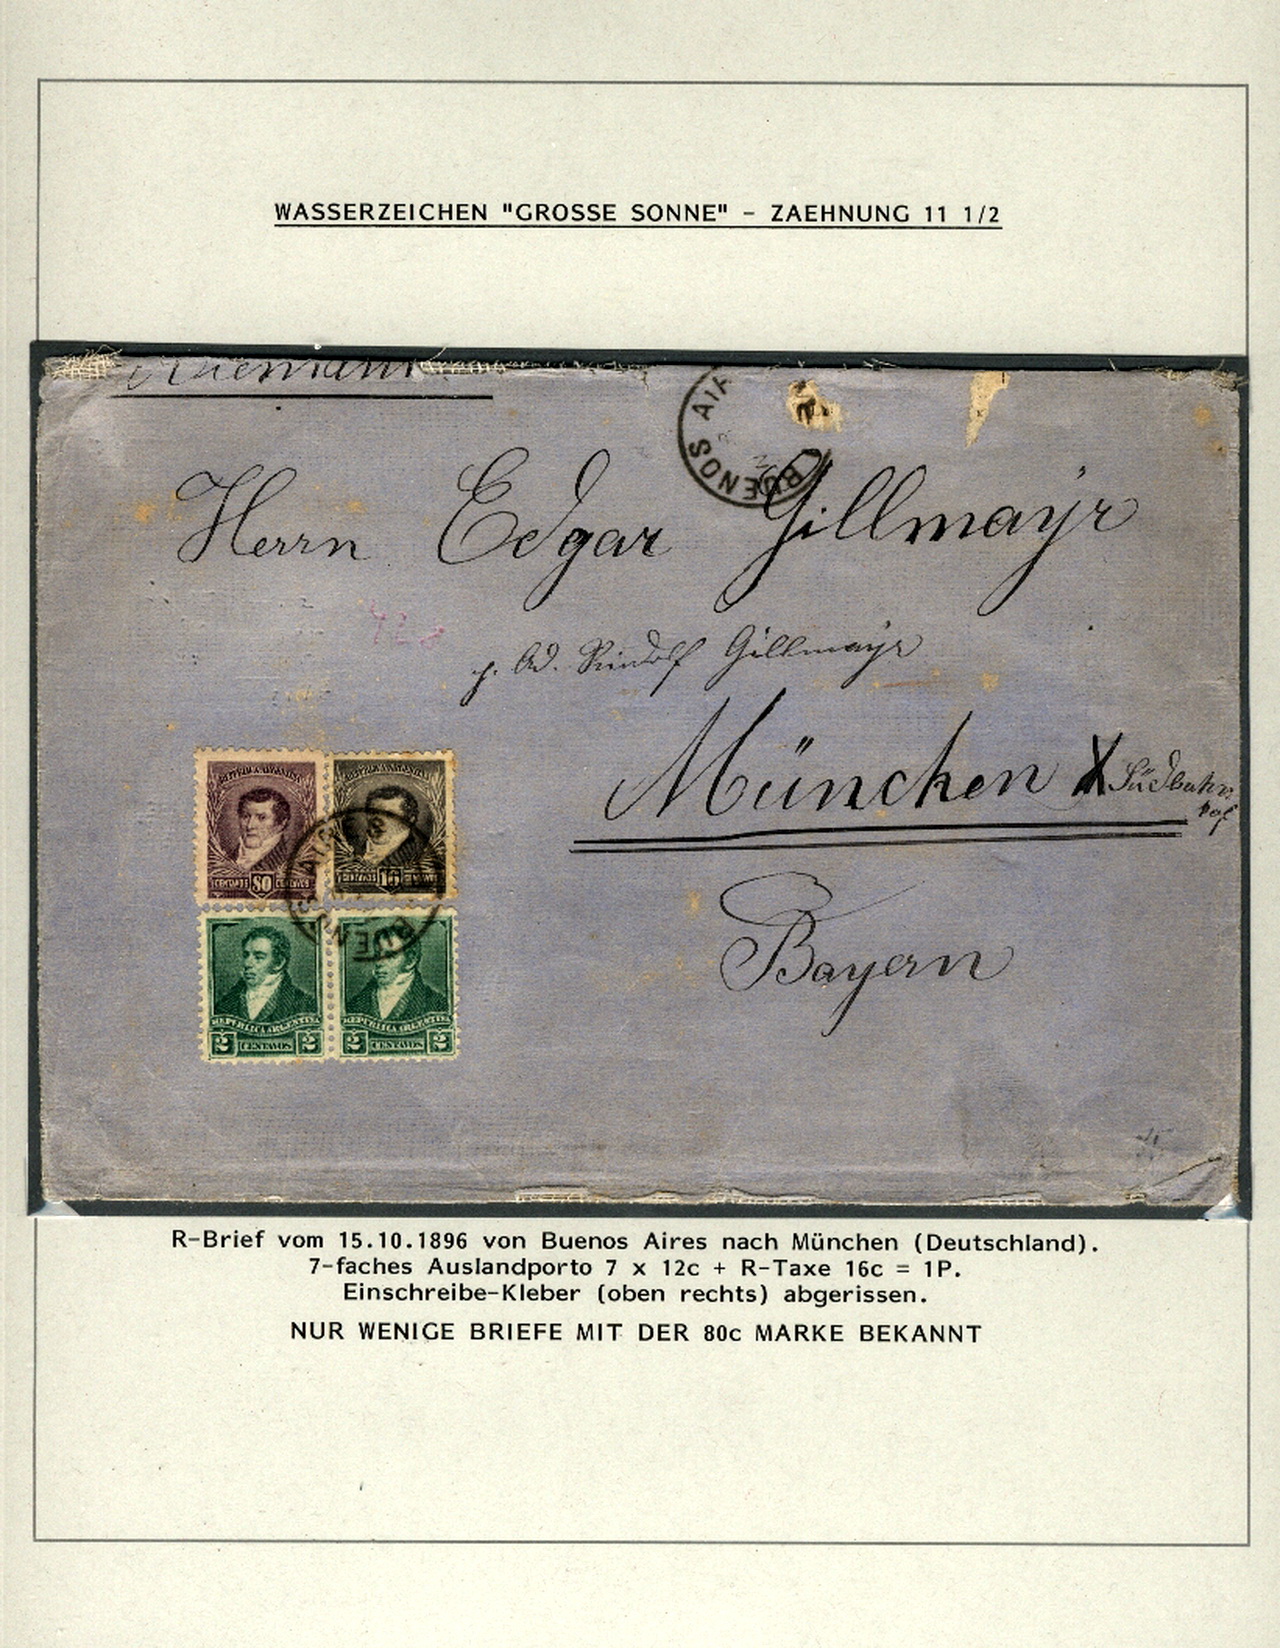 WASSERZEICHEN "GROSSE SONNE" - ZAEHNUNG 11 1/2
BUENOS AIR
Herrn Edgar Gillmayr
p. Ad. Rudolf Gillmayr
München X Südbahn
hof
Bayern
REPUBLICA ARGENTINA
CENTAVOS 80 CENTAVOS
REPUBLICA ARGENTINA
CENTAVOS 16 CENTAVOS
BUENOS AIR
REPUBLICA ARGENTINA
2 CENTAVOS 2
REPUBLICA ARGENTINA
2 CENTAVOS 2
R-Brief vom 15.10.1896 von Buenos Aires nach München (Deutschland).
7-faches Auslandporto 7 x 12c + R-Taxe 16c = 1P.
Einschreibe-Kleber (oben rechts) abgerissen.
NUR WENIGE BRIEFE MIT DER 80c MARKE BEKANNT